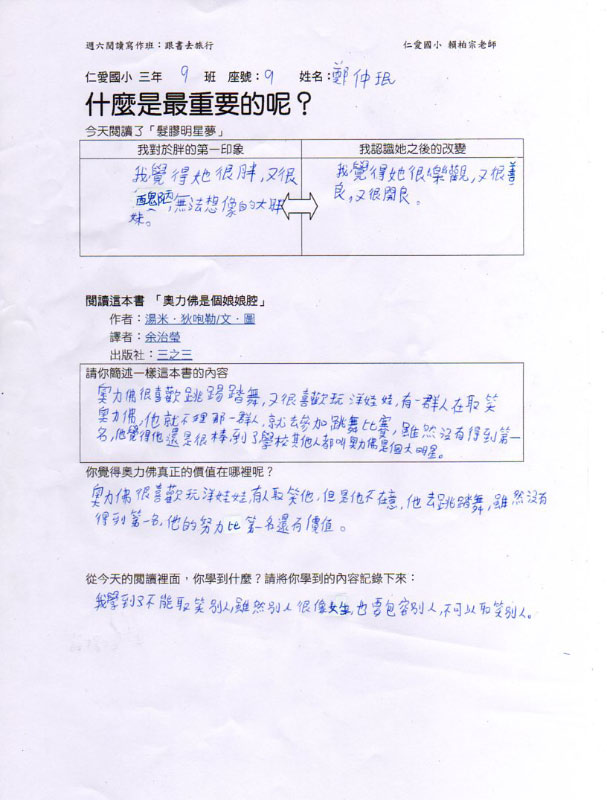 週六閱讀寫作班：跟書去旅行 仁愛國小 賴柏宗老師
仁愛國小 三年 9 班 座號：9 姓名：鄭仲珉
什麼是最重要的呢？
今天閱讀了「髮膠明星夢」
我對於胖的第一印象 我認識她之後的改變
我覺得她很胖，又很
醜陋，無法想像的大胖
妹。
我覺得她很樂觀，又很善
良，又很開良。
閱讀這本書 「奧力佛是個娘娘腔」
作者：湯米．狄咆勒/文．圖
譯者：余治瑩
出版社：三之三
請你簡述一樣這本書的內容
奧力佛很喜歡跳踢踏舞，又很喜歡玩洋娃娃，有一群人在取笑
奧力佛，他就不理那一群人，就去參加跳舞比賽，雖然沒有得到第一
名，他覺得他還是很棒，到了學校其他人都叫奧力佛是個大明星。
你覺得奧力佛真正的價值在哪裡呢？
奧力佛很喜歡玩洋娃娃，有人取笑他，但是他不在意，他去跳踏舞，雖然沒有
得到第一名，他的努力比第一名還有價值。
從今天的閱讀裡面，你學到什麼？請將你學到的內容記錄下來：
我學到了不能取笑別人，雖然別人很像女生，也要包容別人，不可以取笑別人。